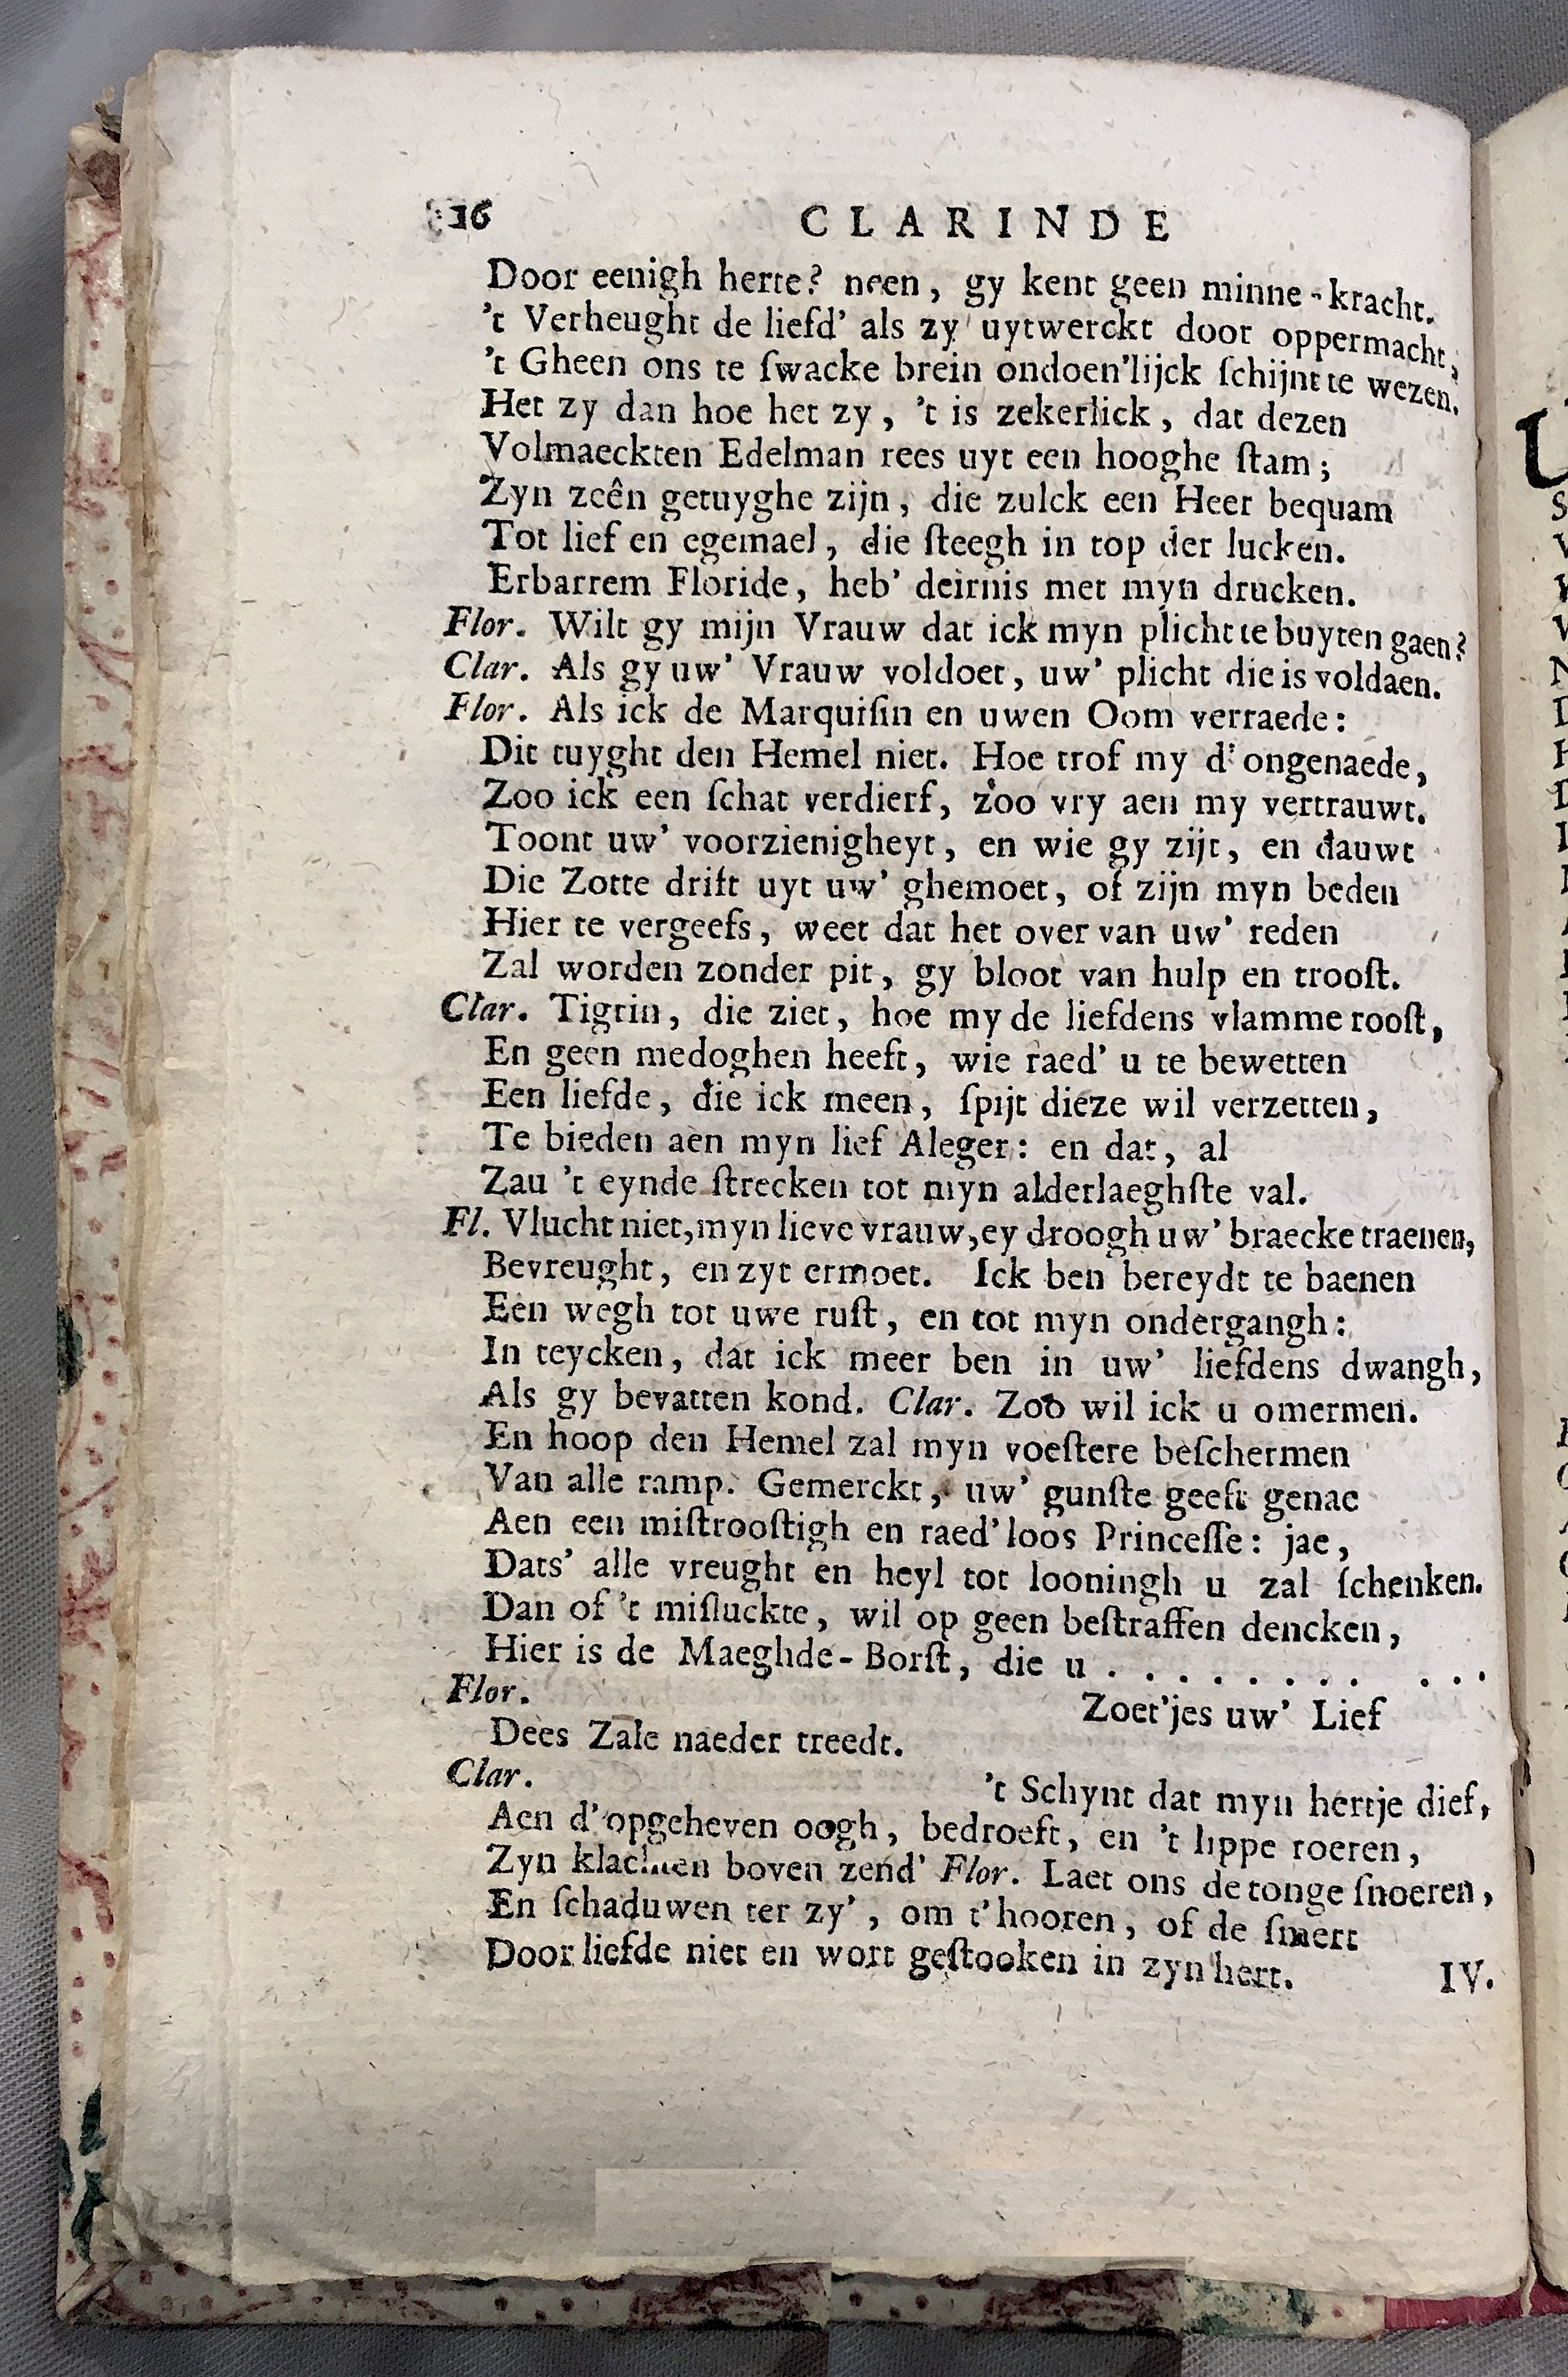 16 CLARINDE
Door eenigh herte? neen, gy kent geen minne-kracht.
't Verheught de liefd' als zy uytwerckt door oppermacht,
't Gheen ons te ſwacke brein ondoen'lijck ſchijnt te wezen.
Het zy dan hoe het zy, 't is zekerlick, dat dezen
Volmaeckten Edelman rees uyt een hooghe ſtam;
Zyn zeên getuyghe zijn, die zulck een Heer bequam
Tot lief en egemael, die ſteegh in top der lucken.
Erbarrem Floride, heb' deirnis met myn drucken.
Flor. Wilt gy mijn Vrauw dat ick myn plicht te buyten gaen?
Clar. Als gy uw' Vrauw voldoet, uw' plicht die is voldaen.
Flor. Als ick de Marquiſin en uwen Oom verraede:
Dit tuyght den Hemel niet. Hoe trof my d' ongenaede,
Zoo ick een ſchat verdierf, zoo vry aen my vertrauwt.
Toont uw' voorzienigheyt, en wie gy zijt, en dauwt
Die Zotte drift uyt uw' ghemoet, of zijn myn beden
Hier te vergeefs, weet dat het over van uw' reden
Zal worden zonder pit, gy bloot van hulp en trooſt.
Clar. Tigrin, die ziet, hoe my de liefdens vlamme rooſt,
En geen medoghen heeft, wie raed' u te bewetten
Een liefde, die ick meen, ſpijt dieze wil verzetten,
Te bieden aen myn lief Aleger: en dat, al
Zau 't eynde ſtrecken tot myn alderlaeghſte val.
Fl. Vlucht niet, myn lieve vrauw, ey droogh uw' braecke traenen,
Bevreught, en zyt ermoet. Ick ben bereydt te baenen
Een wegh tot uwe ruſt, en tot myn ondergangh:
In teycken, dat ick meer ben in uw' liefdens dwangh,
Als gy bevatten kond. Clar. Zoo wil ick u omermen.
En hoop den Hemel zal myn voeſtere beſchermen
Van alle ramp. Gemerckt, uw' gunſte geeft genae
Aen een miſtrooſtigh en raed'loos Princeſſe: jae,
Dats' alle vreught en heyl tot looningh u zal ſchenken.
Dan of 't miſluckte, wil op geen beſtraffen dencken,
Hier is de Maeghde-Borſt, die u . . . . . . . . . . .
Flor. Zoet'jes uw' Lief
Dees Zale naeder treedt.
Clar. 't Schynt dat myn hertje dief,
Aen d' opgeheven oogh, bedroeft, en 't lippe roeren,
Zyn klachten boven zend' Flor. Laet ons de tonge ſnoeren,
En ſchaduwen ter zy', om t'hooren, of de ſmert
Door liefde niet en wort geſtooken in zyn hert.
IV.